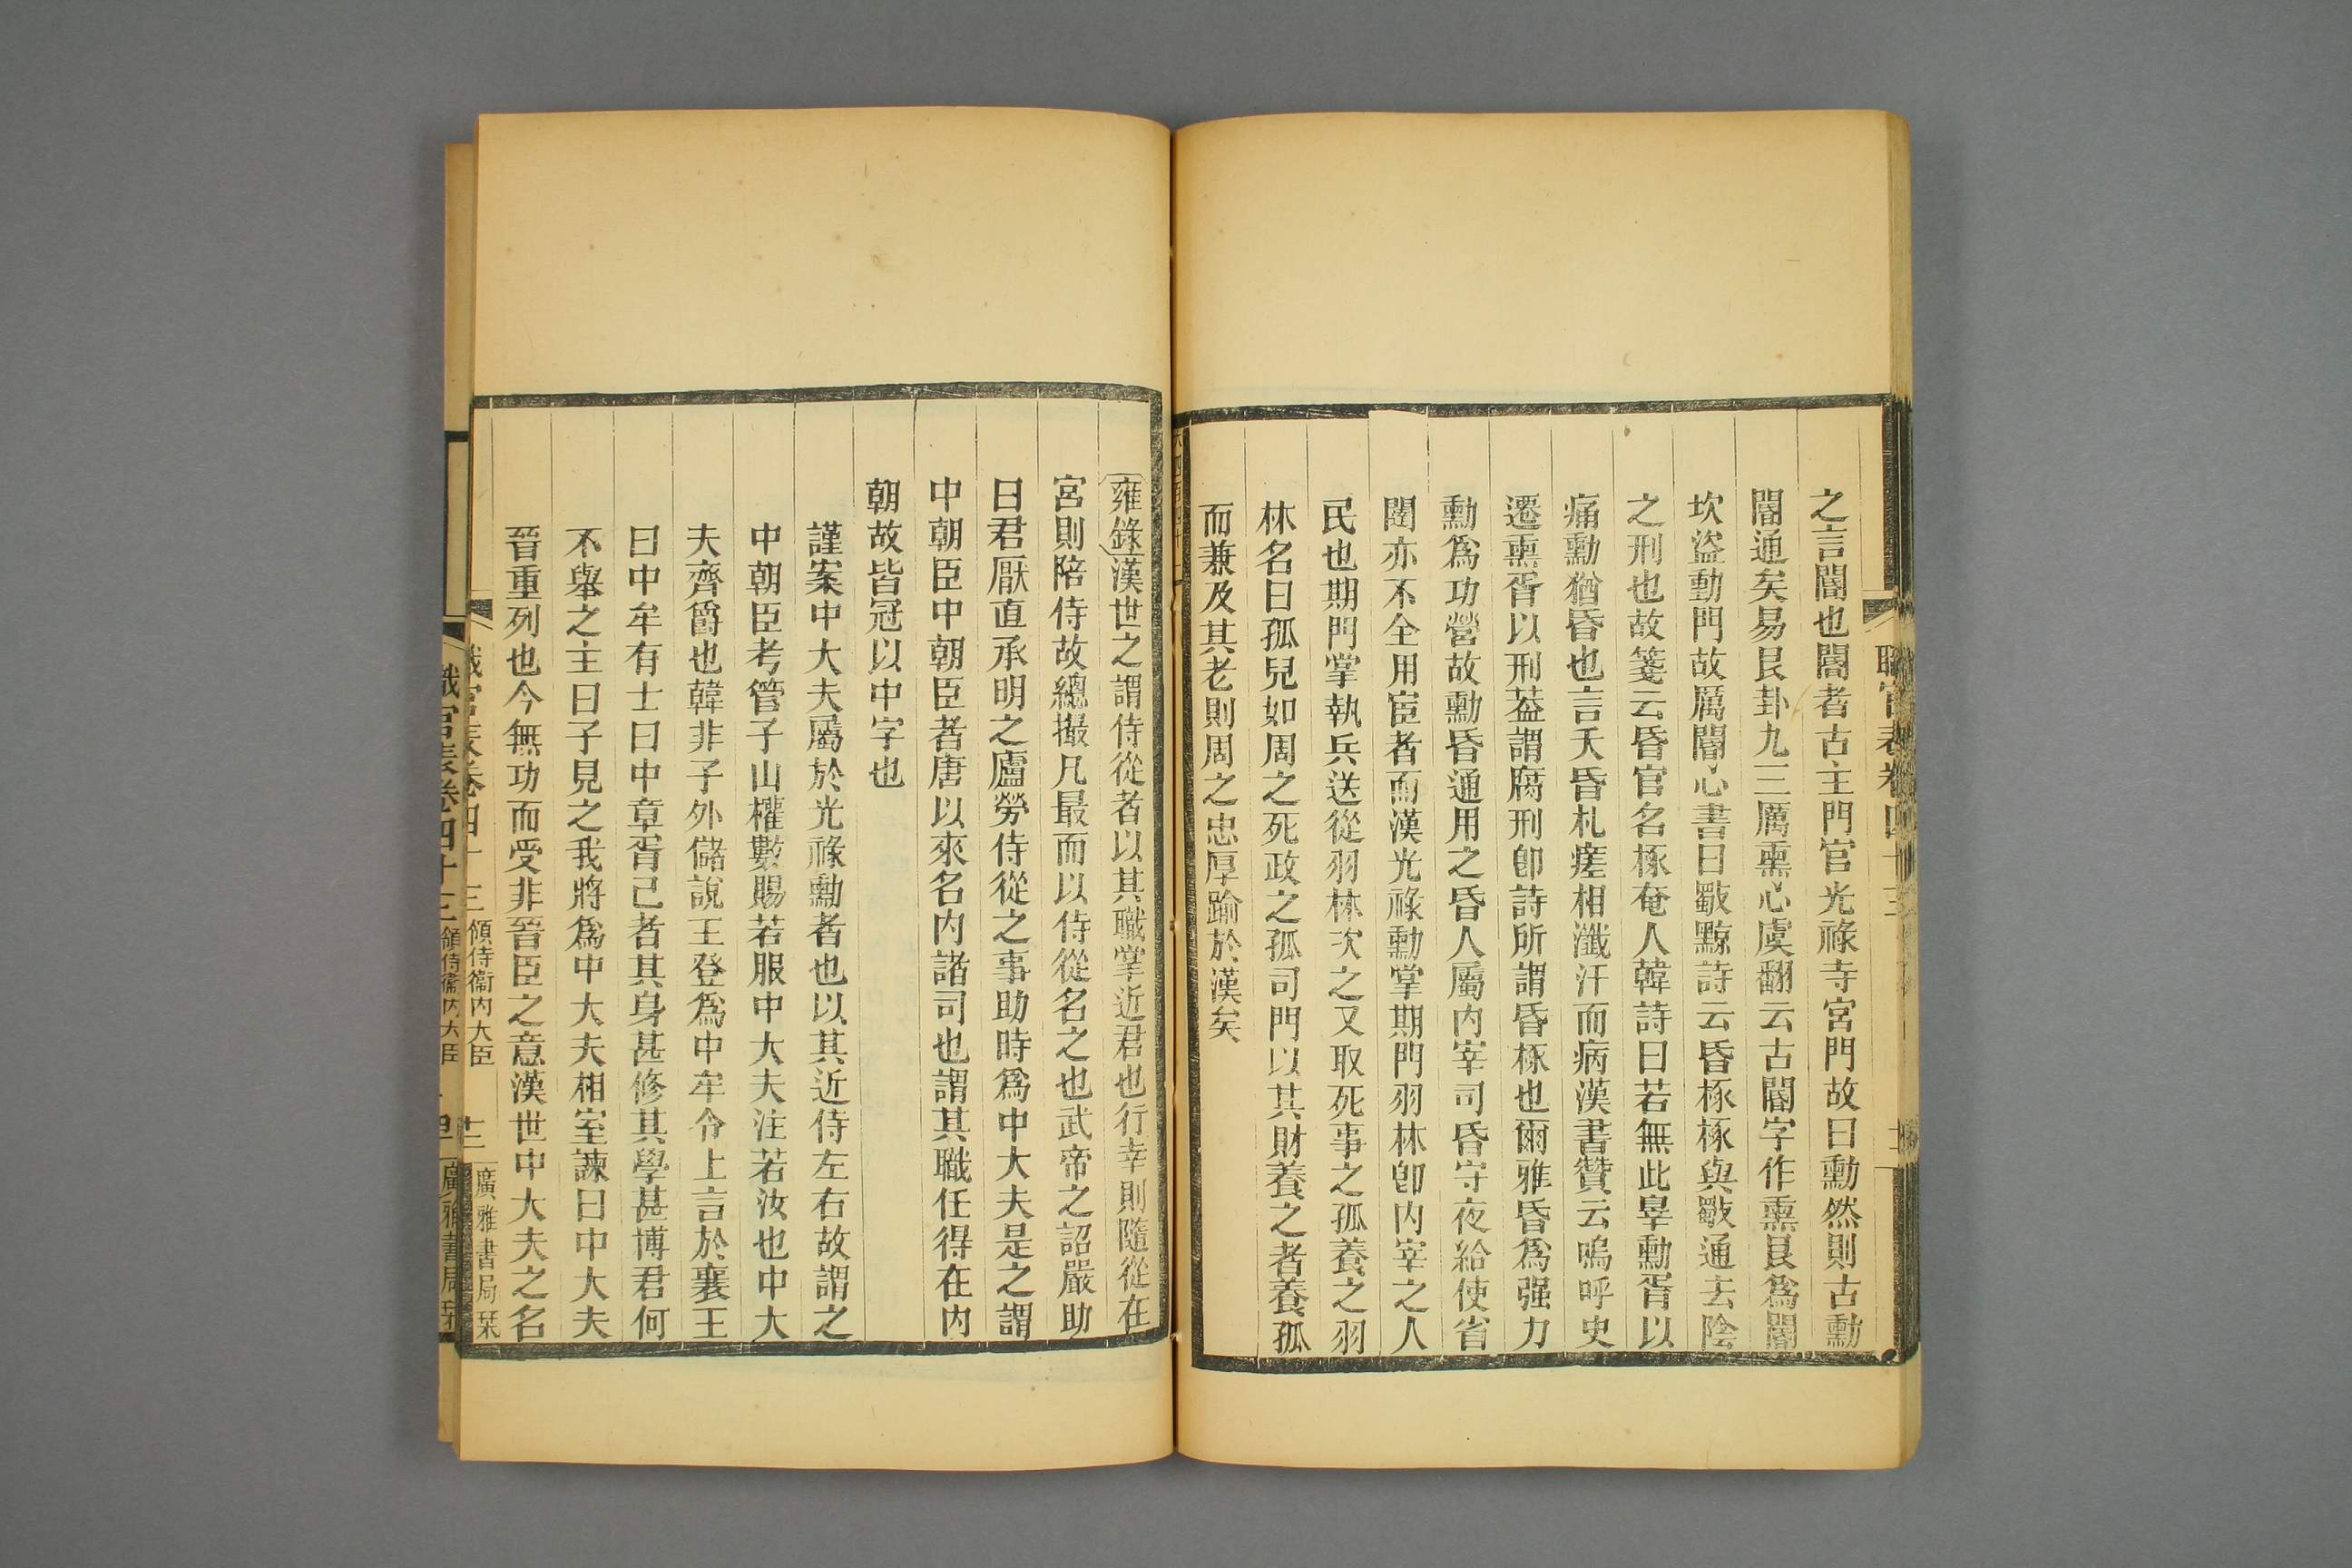 職官表卷四十三
之言閽也閽者古主門官光祿寺宮門故曰勳然則古勳
閽通矣易艮卦九三厲熏心虞翻云古閽字作熏艮爲閽
坎盜動門故厲閽心書曰劅黥詩云昏椓椓與劅通去陰
之刑也故箋云昏官名椓奄人韓詩曰若無此辠勳胥以
痛勳猶昏也言天昏札瘥相瀸汙而病漢書贊云嗚呼史
遷熏胥以刑葢謂腐刑卽詩所謂昏椓也爾雅昏爲强力
勳爲功營故勳昏通用之昏人屬内宰司昏守夜給使省
闥亦不全用宦者而漢光祿勳掌期門羽林卽内宰之人
民也期門掌執兵送從羽林次之又取死事之孤養之羽
林名曰孤兒如周之死政之孤司門以其財養之者養孤
而兼及其老則周之忠厚踰於漢矣
雍錄漢世之謂侍從者以其職掌近君也行幸則隨從在
宮則陪侍故總撮凡最而以侍從名之也武帝之詔嚴助
曰君厭直承明之廬勞侍從之事助時爲中大夫是之謂
中朝臣中朝臣者唐以來名内諸司也謂其職任得在内
朝故皆冠以中字也
謹案中大夫屬於光祿勳者也以其近侍左右故謂之
中朝臣考管子山權數賜若服中大夫注若汝也中大
夫齊爵也韓非子外儲說王登爲中牟令上言於襄王
曰中牟有士曰中章胥己者其身甚修其學甚博君何
不舉之主曰子見之我將爲中大夫相室諫曰中大夫
晉重列也今無功而受非晉臣之意漢世中大夫之名
職官表卷四十三 領侍衞内大臣 十三 廣雅書局栞
職官表卷四十三 領侍衞内大臣 廣雅書局栞